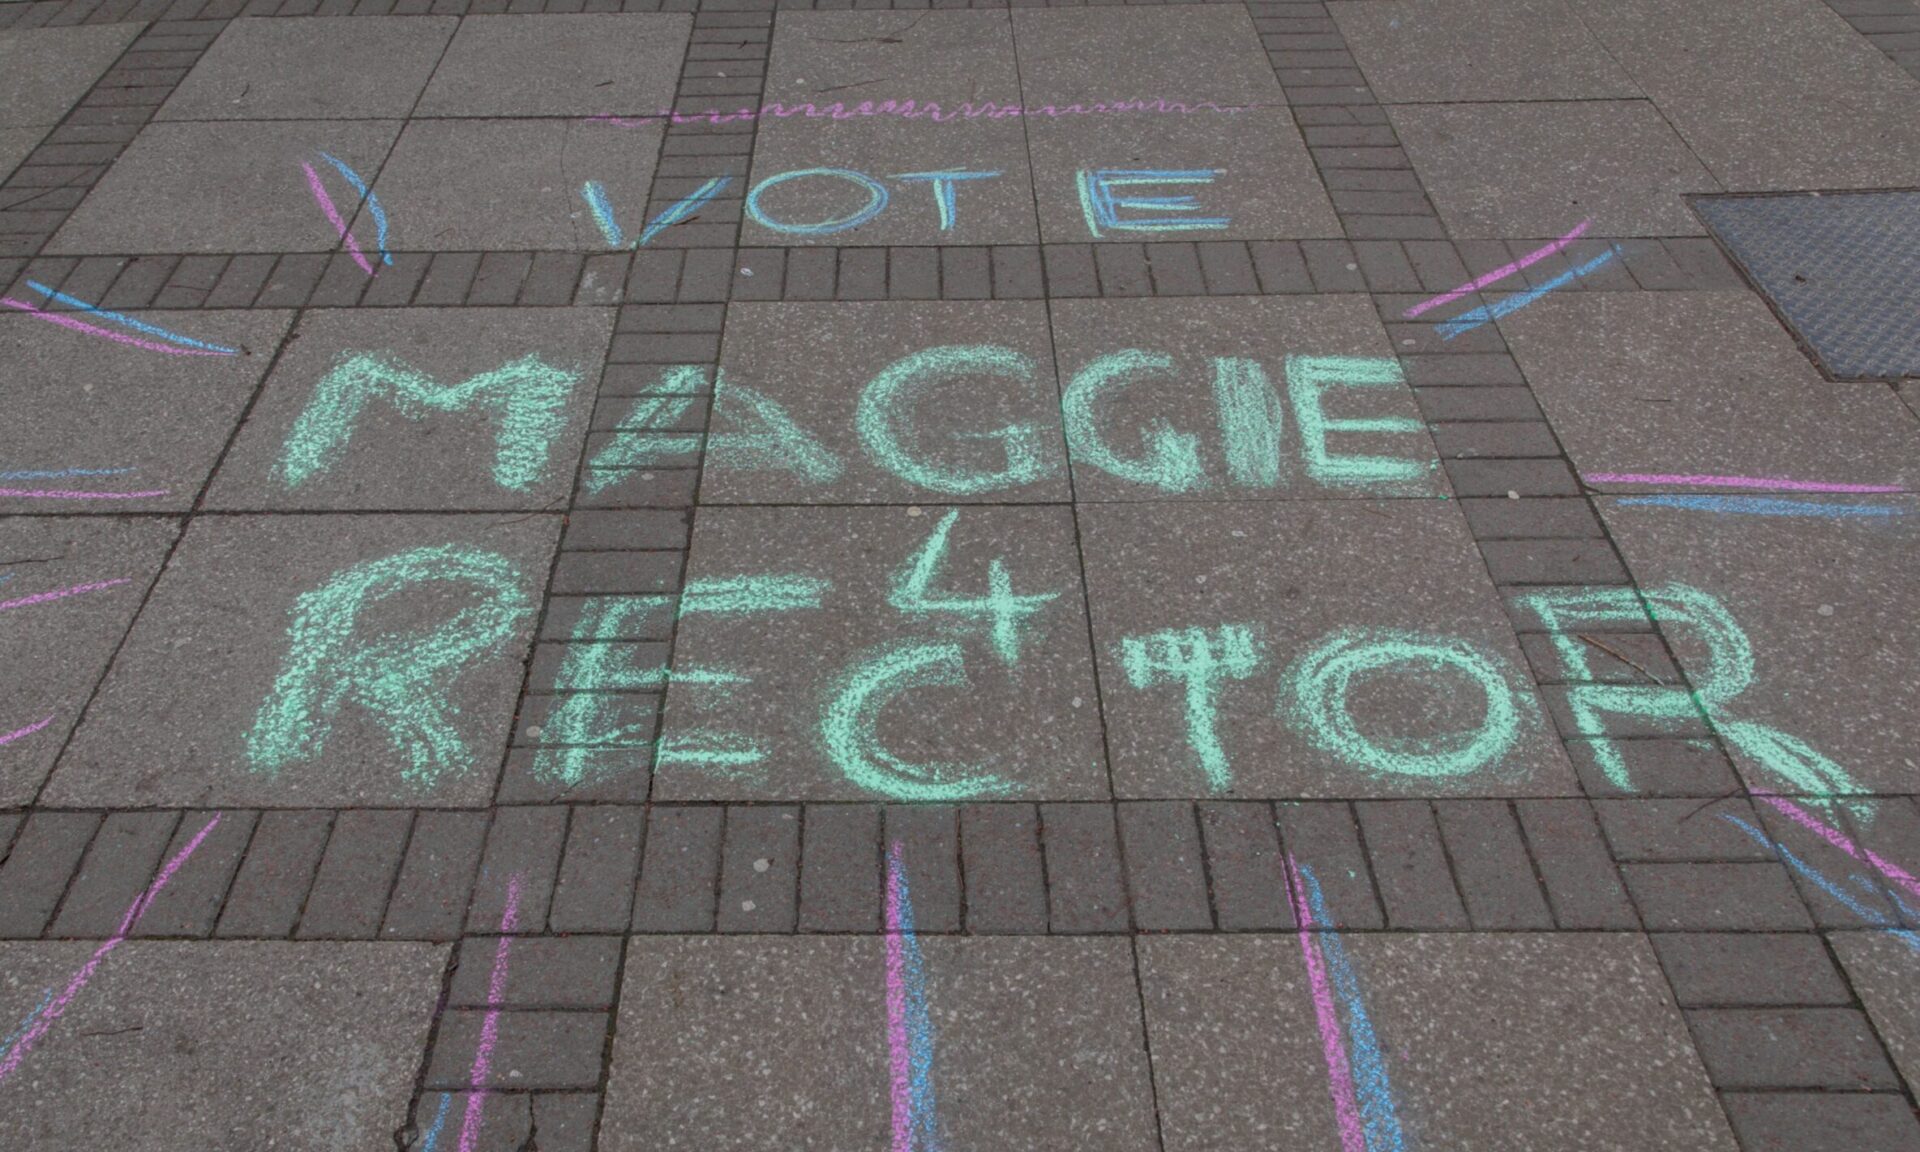 VOTE
MAGGIE
4
RECTOR